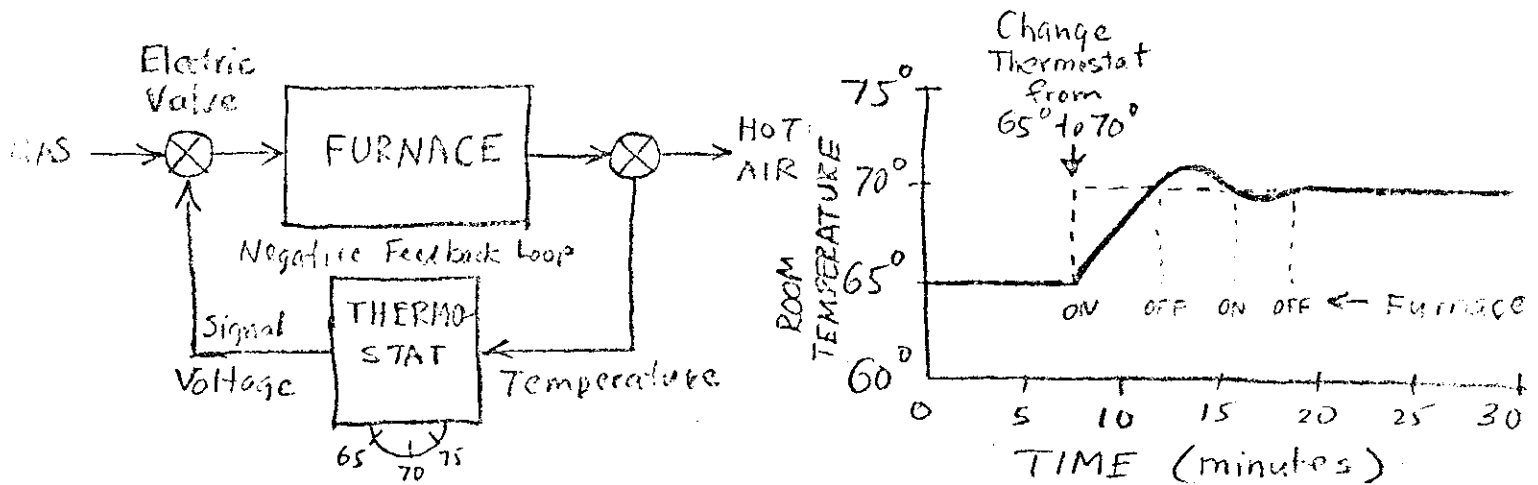 Electric
Valve
GAS
FURNACE
HOT
AIR
Negative Feedback Loop
Signal
Voltage
THERMO-
STAT
Temperature
65
70
75
Change
Thermostat
from
65° to 70°
75°
70°
65°
60°
ROOM
TEMPERATURE
ON OFF ON OFF ← Furnace
0 5 10 15 20 25 30
TIME (minutes)